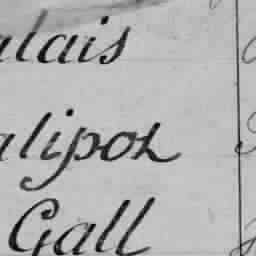 alais
alipot
Gall